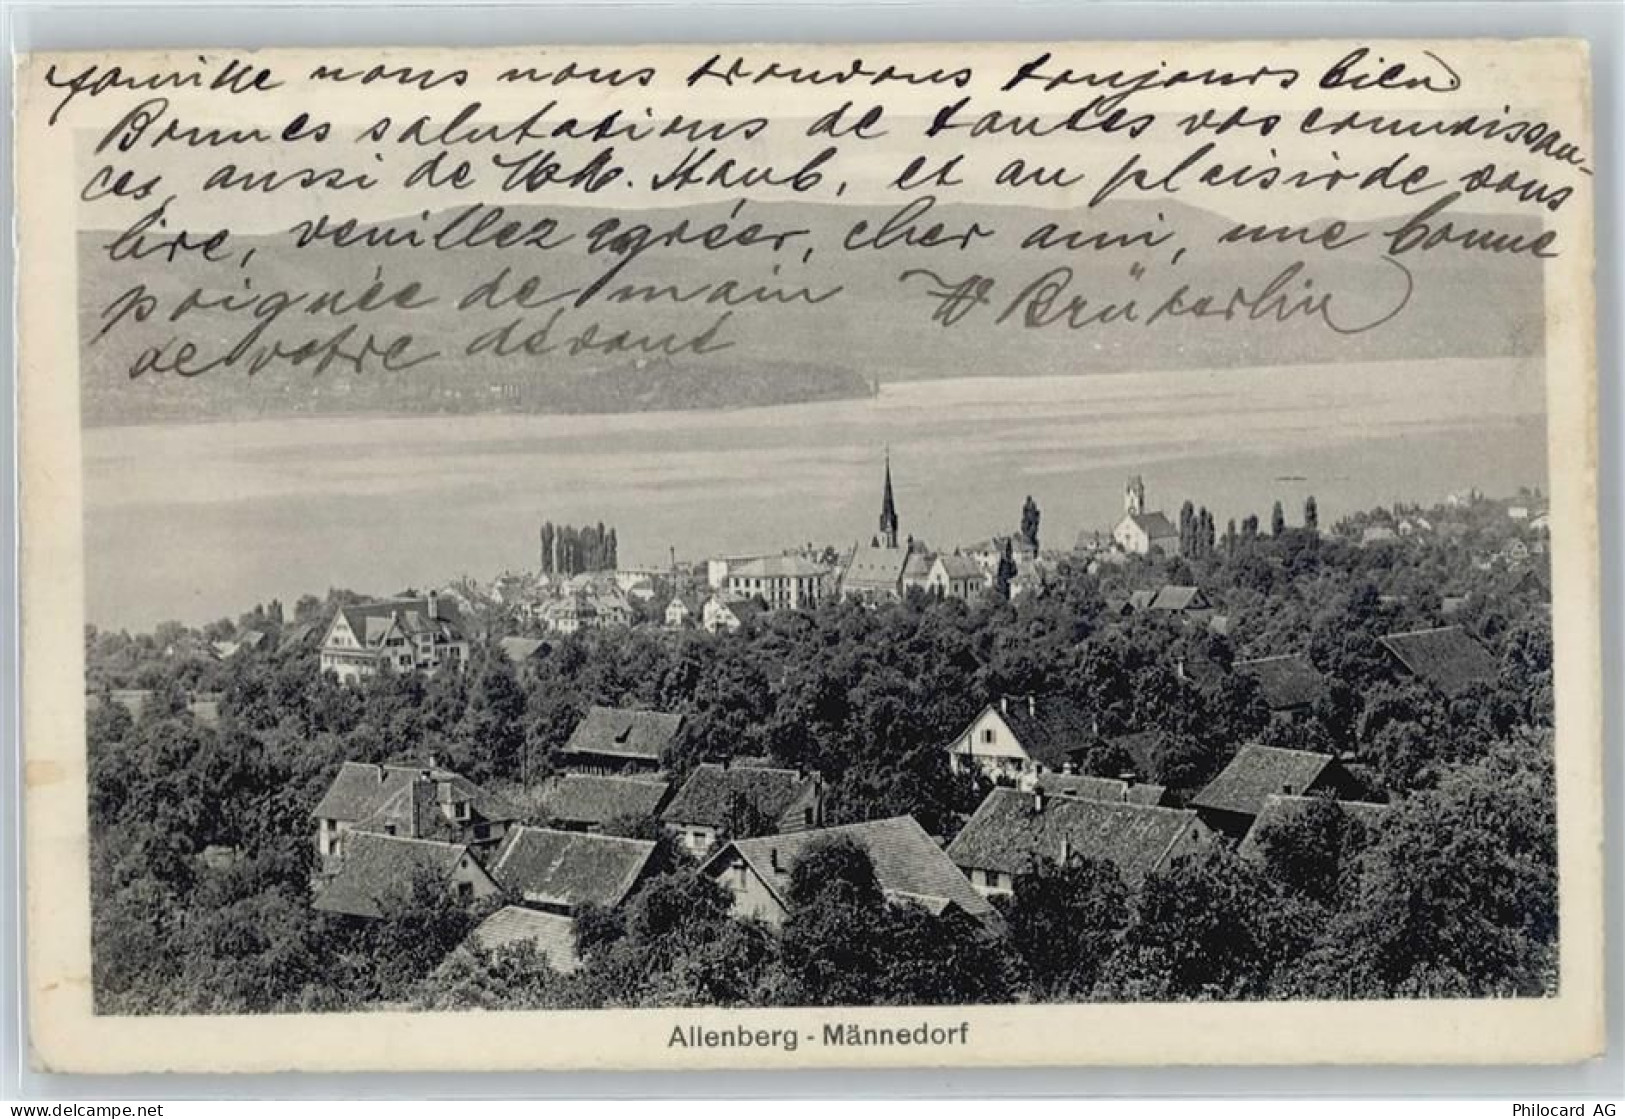 famille nous nous trouvons toujours bien.
Bonnes salutations de toutes vos connaissan-
ces, aussi de Staub, et au plaisir de vous
lire, veuillez agréer, cher ami, une bonne
poignée de main W Brüterlin
de votre dévoué
Allenberg - Männedorf
www.delcampe.net
Philocard AG